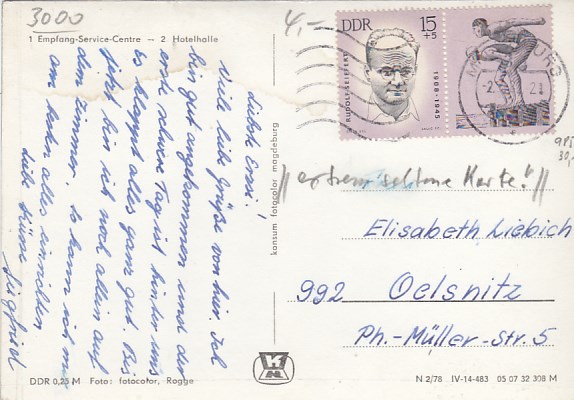 3000
4,-
1 Empfang-Service-Centre – 2 Hotelhalle
DDR 15+5
RUDOLF SEIFFERT 1908-1945
liebste Erni!
Viele liebe Grüße von hier. Ich
bin gut angekommen und der
erste schwere Tag ist hinter uns
Es klappt alles ganz gut. Bis
jetzt bin ich noch allein auf
dem Zimmer, so kann ich mir
am besten alles einrichten
liebe Küsse
Siegfried
konsum fotocolor magdeburg
//extrem seltene Karte!//
Elisabeth Liebich
992 Oelsnitz
Ph.-Müller-Str. 5
DDR 0,25 M Foto: fotocolor, Rogge
N 2/78 IV-14-483 05 07 32 308 M